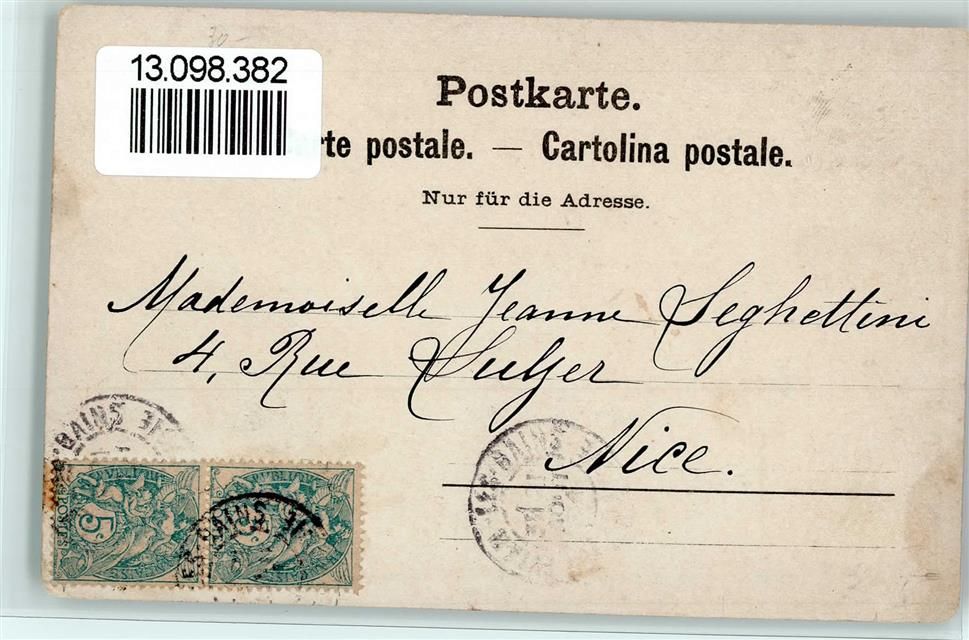 13.098.382
Postkarte.
rte postale. — Cartolina postale.
Nur für die Adresse.
Mademoiselle Jeanne Seghettini
4, Rue Sulzer
Nice.
5c
BAINS
BAINS
LES-BAINS